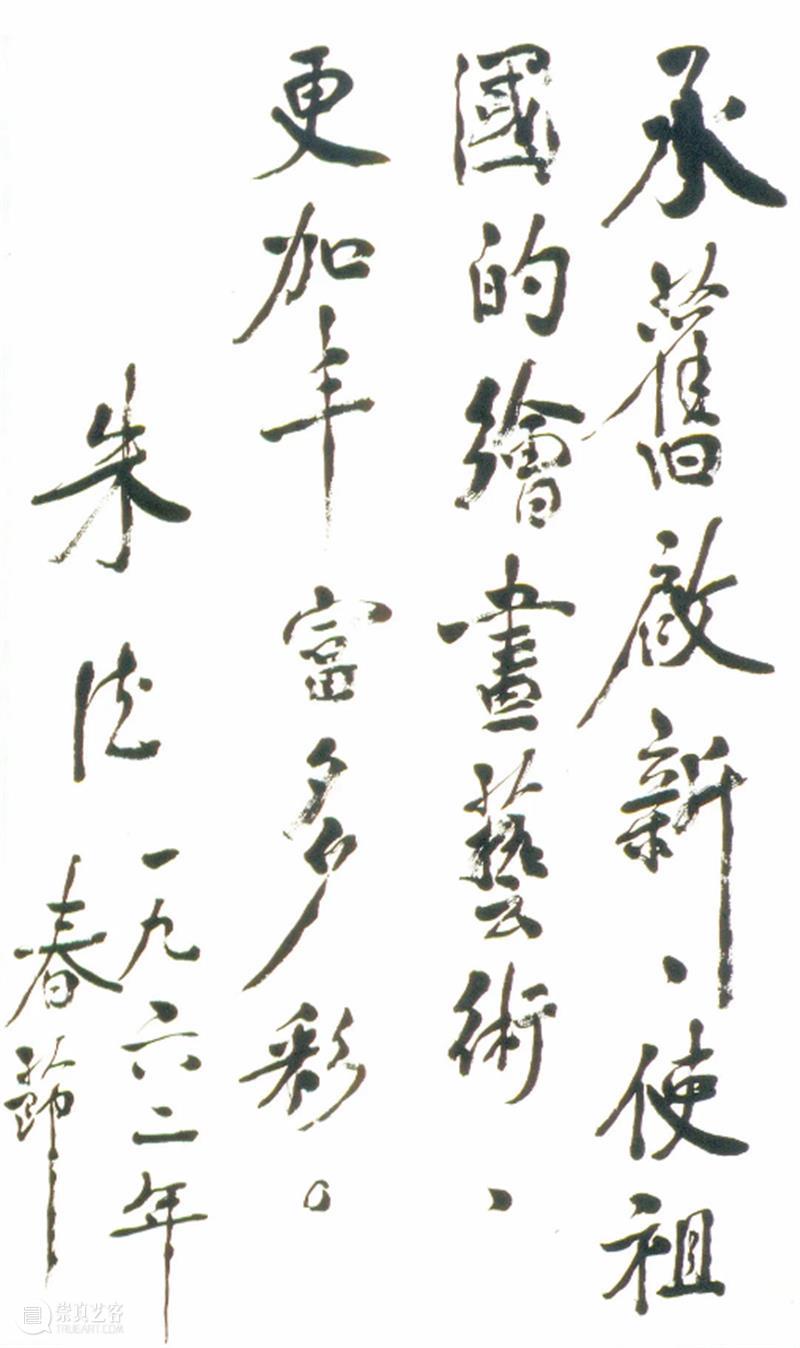 承舊啟新、使祖
國的繪畫藝術、
更加丰富多彩。
朱德
一九六二年
春節
崇真艺客
TRUEART.COM